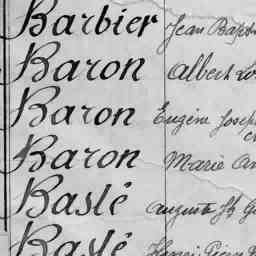 Barbier Jean Bapt
Baron Albert Lo
Baron Eugène Joseph
Baron Marie An
Baslé Auguste
Baslé Henri Pierre